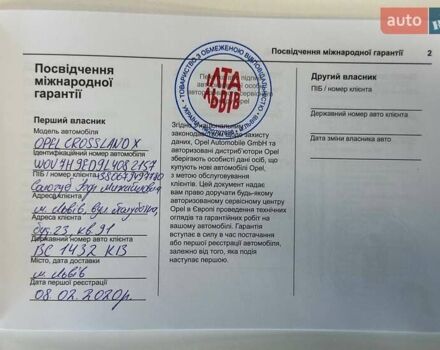 auto
Посвідчення міжнародної гарантії
2
Посвідчення
міжнародної
гарантії
Перший власник
Модель автомобіля
OPEL CROSSLAND X
Ідентифікаційний номер автомобіля
ПІБ / номер клієнта
Адреса клієнта
м. Львів, вул
Адреса клієнта
буд. 23, кв. 91
Державний номер авто клієнта
ВС 1432 КВ
Місто, дата доставки
м. Львів
Дата першої реєстрації
08.02.2020р.
ТОВАРИСТВО З ОБМЕЖЕНОЮ ВІДПОВІДАЛЬНІСТЮ
ЛТА
ЛЬВІВ
Згідно
законодавством щодо захисту
даних, Opel Automobile GmbH та
авторизовані дистриб'ютори Opel
зберігають особисті дані осіб, що
купують нові автомобілі Opel,
з метою обслуговування
клієнтів. Цей документ надає
вам право доручати будь-якому
авторизованому сервісному центру
Opel в Європі проведення технічних
оглядів та гарантійних робіт на
вашому автомобілі. Гарантія
вступає в силу в час постачання
або першої реєстрації автомобіля,
залежно від того, яка подія
наступає першою.
Другий власник
ПІБ / номер клієнта
Державний номер авто клієнта
Дата зміни власника авто